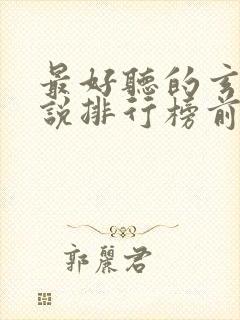 最好聽的玄
說排行榜前
郭麗君